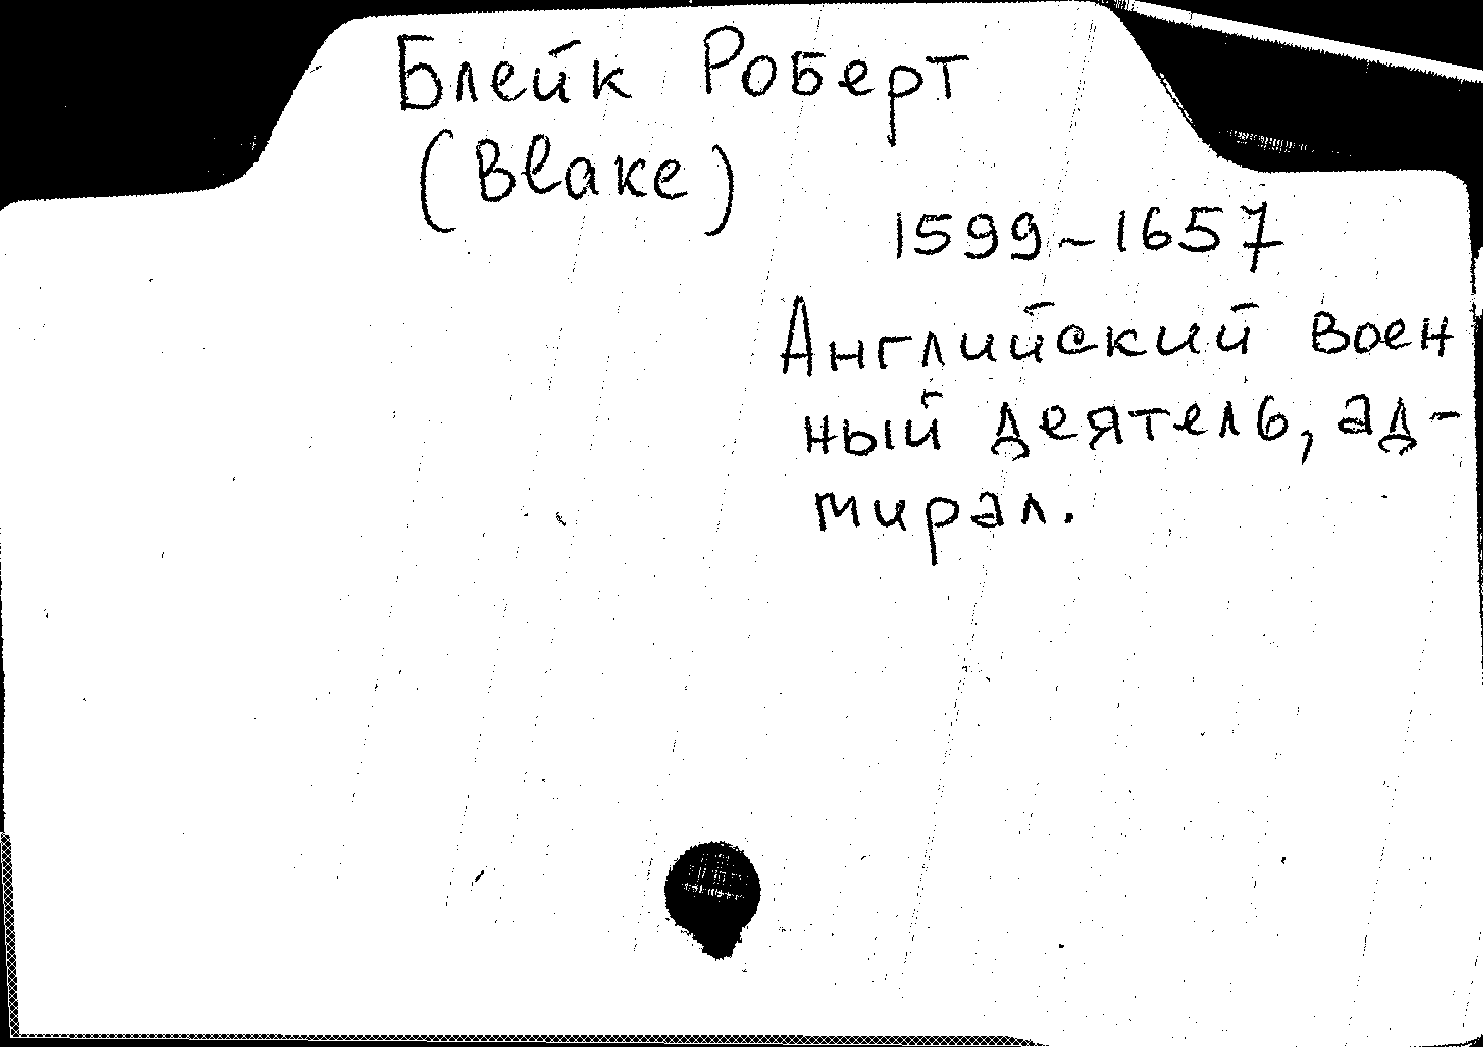 Блейк Роберт
(Blake)
1599-1657
Английский воен
ный деятель, ад-
мирал.